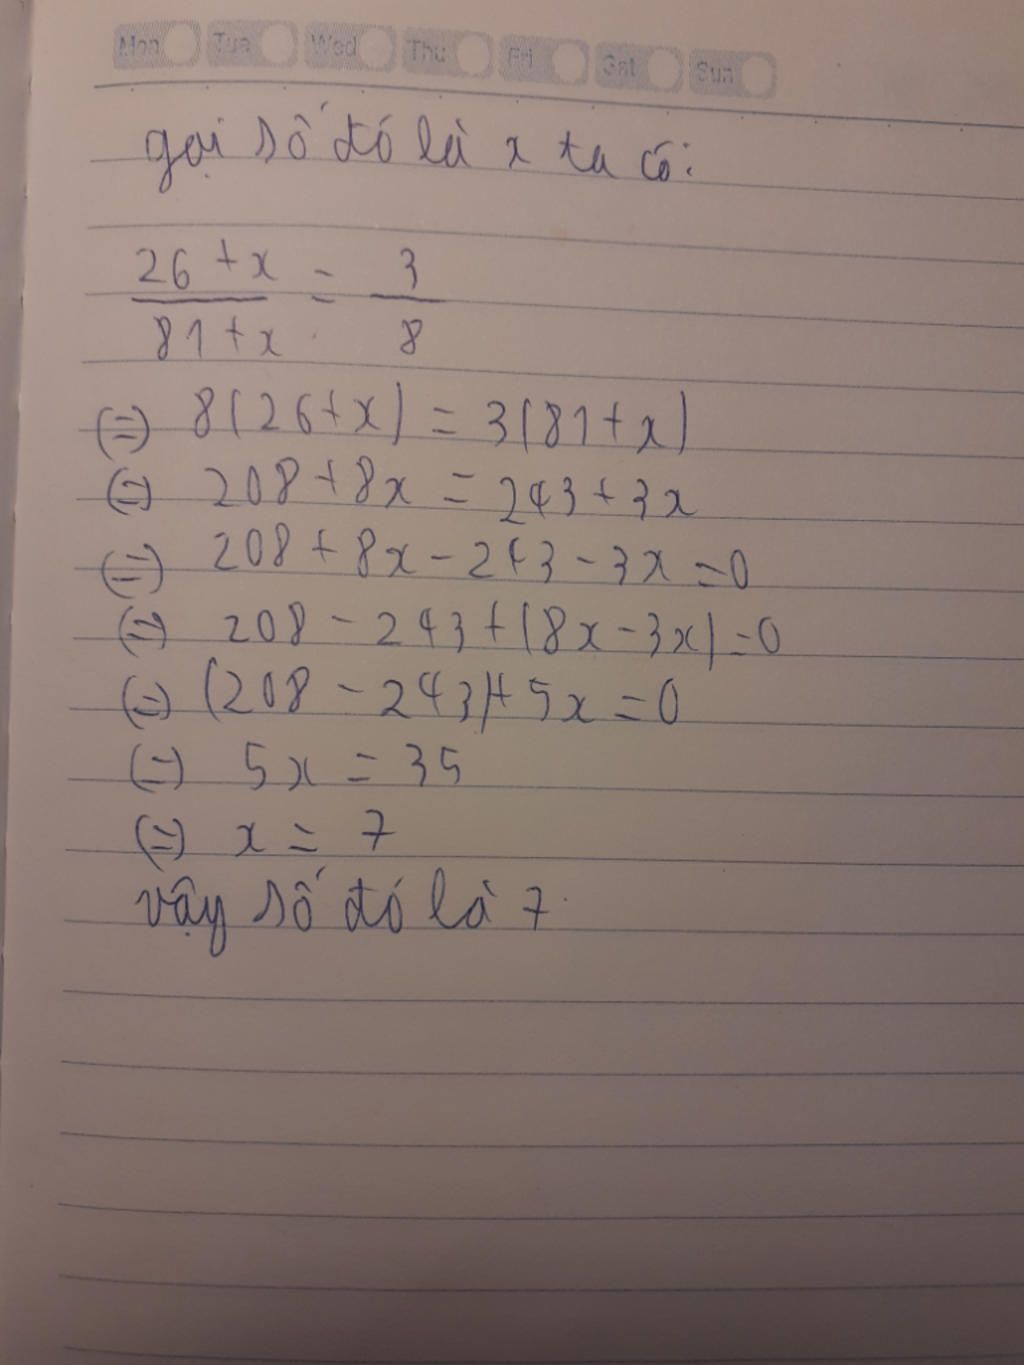 Mon Tue Wed Thu Fri Sat Sun
gọi số đó là x ta có:
26 + x / 81 + x = 3 / 8
(=) 8(26+x) = 3(81+x)
(=) 208 + 8x = 243 + 3x
(=) 208 + 8x - 243 - 3x = 0
(=) 208 - 243 + (8x - 3x) = 0
(=) (208 - 243) + 5x = 0
(=) 5x = 35
(=) x = 7
vậy số đó là 7.